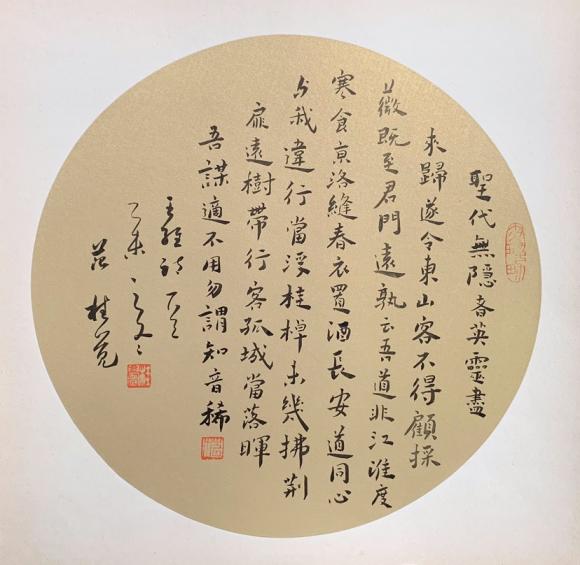 聖代無隐者英靈盡
来歸遂令東山客不得顧採
薇既至君門遠孰云吾道非江淮度
寒食亰洛縫春衣置酒長安道同心
与我違行當浮桂棹未幾拂荆
扉遠樹帶行客孤城當落暉
吾謀適不用勿謂知音稀
王維詩
乙未之冬
范桂